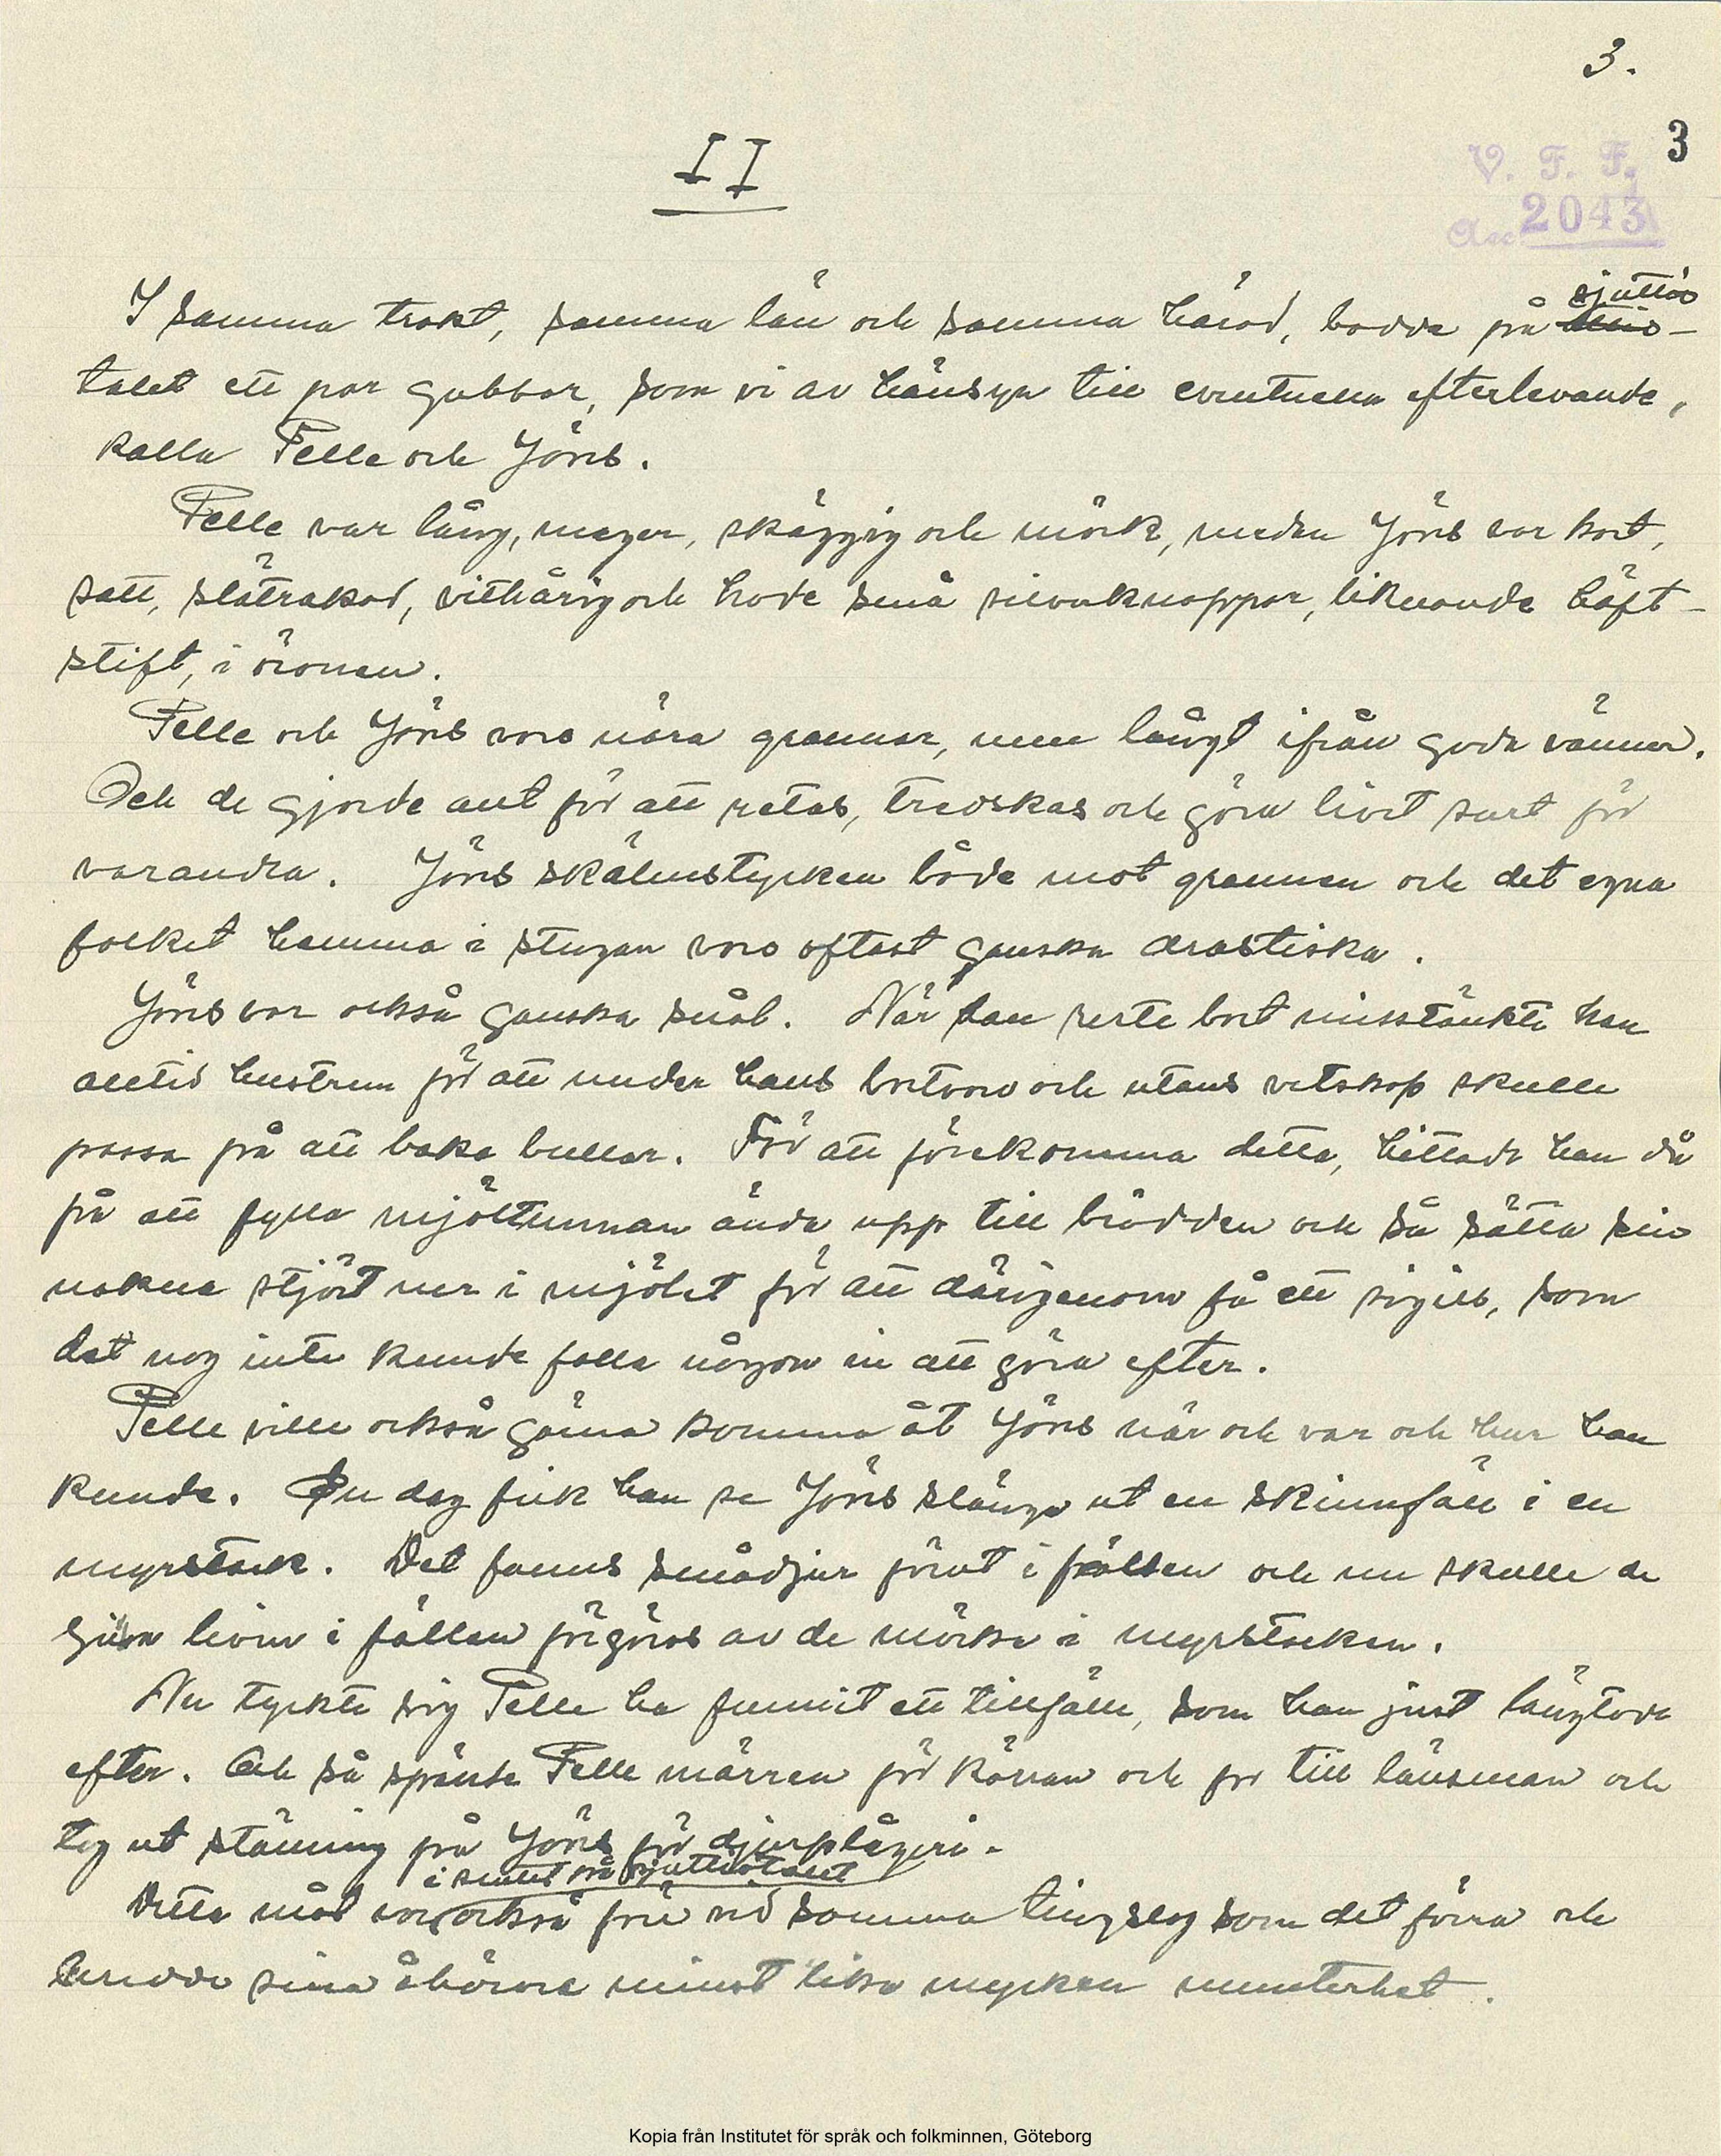 3.
3
II
V. F. F.
Acc. 2043
I samma trakt, samma län och samma härad, bodde på sjuttio-
talet ett par gubbar, som vi av hänsyn till eventuella efterlevande,
kalla Pelle och Jöns.
Pelle var lång, mager, skäggig och mörk, medan Jöns var kort,
satt, slätrakad, vithårig och hade små silvaknappar, liknande häft-
stift, i öronen.
Pelle och Jöns voro nära grannar, men långt ifrån goda vänner.
Och de gjorde allt för att retas, tredskas och göra livet surt för
varandra. Jöns skälmstycken både mot grannen och det egna
folket hemma i stugan voro oftast ganska drastiska.
Jöns var också ganska snål. När han reste bort misstänkte han
alltid hustrun för att under hans bortvaro och utans vetskap skulle
passa på att baka bullar. För att förekomma detta, hittade han då
på att fylla mjöltunnan ända upp till brädden och så sätta sin
nakna stjört ner i mjölet för att därigenom få ett sigill, som
det nog inte kunde falla någon in att göra efter.
Pelle ville också gärna komma åt Jöns när och var och hur han
kunde. En dag fick han se Jöns slänga ut en skinnfäll i en
myrstack. Det fanns smådjur förut i fällen och nu skulle de
ljusa liven i fällen förgöras av de mörka i myrstacken.
Nu tyckte sig Pelle ha funnit ett tillfälle, som han just längtade
efter. Och så spände Pelle märren för kärran och for till länsman och
tog ut stämning på Jöns för djurplågeri.
i slutet på sjuttiotalet
Detta mål var också före vid samma tingslag som det förra och
beredde sina åhörare minst lika mycken munterhet.
Kopia från Institutet för språk och folkminnen, Göteborg